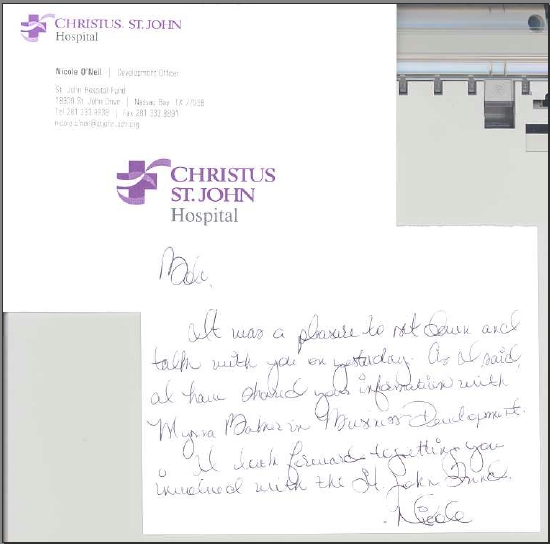 CHRISTUS. ST. JOHN
Hospital
Nicole O'Neil | Development Officer
St. John Hospital Fund
18300 St. John Drive | Nassau Bay, TX
Tel 281 333.8888 | Fax 281 333.8891
CHRISTUS
ST. JOHN
Hospital
It was a pleasure to sit down and
talk with you on yesterday. As I said,
I have shared your information with
in Business Development.
I look forward to getting you
involved with the St. John Fund.
Nicole